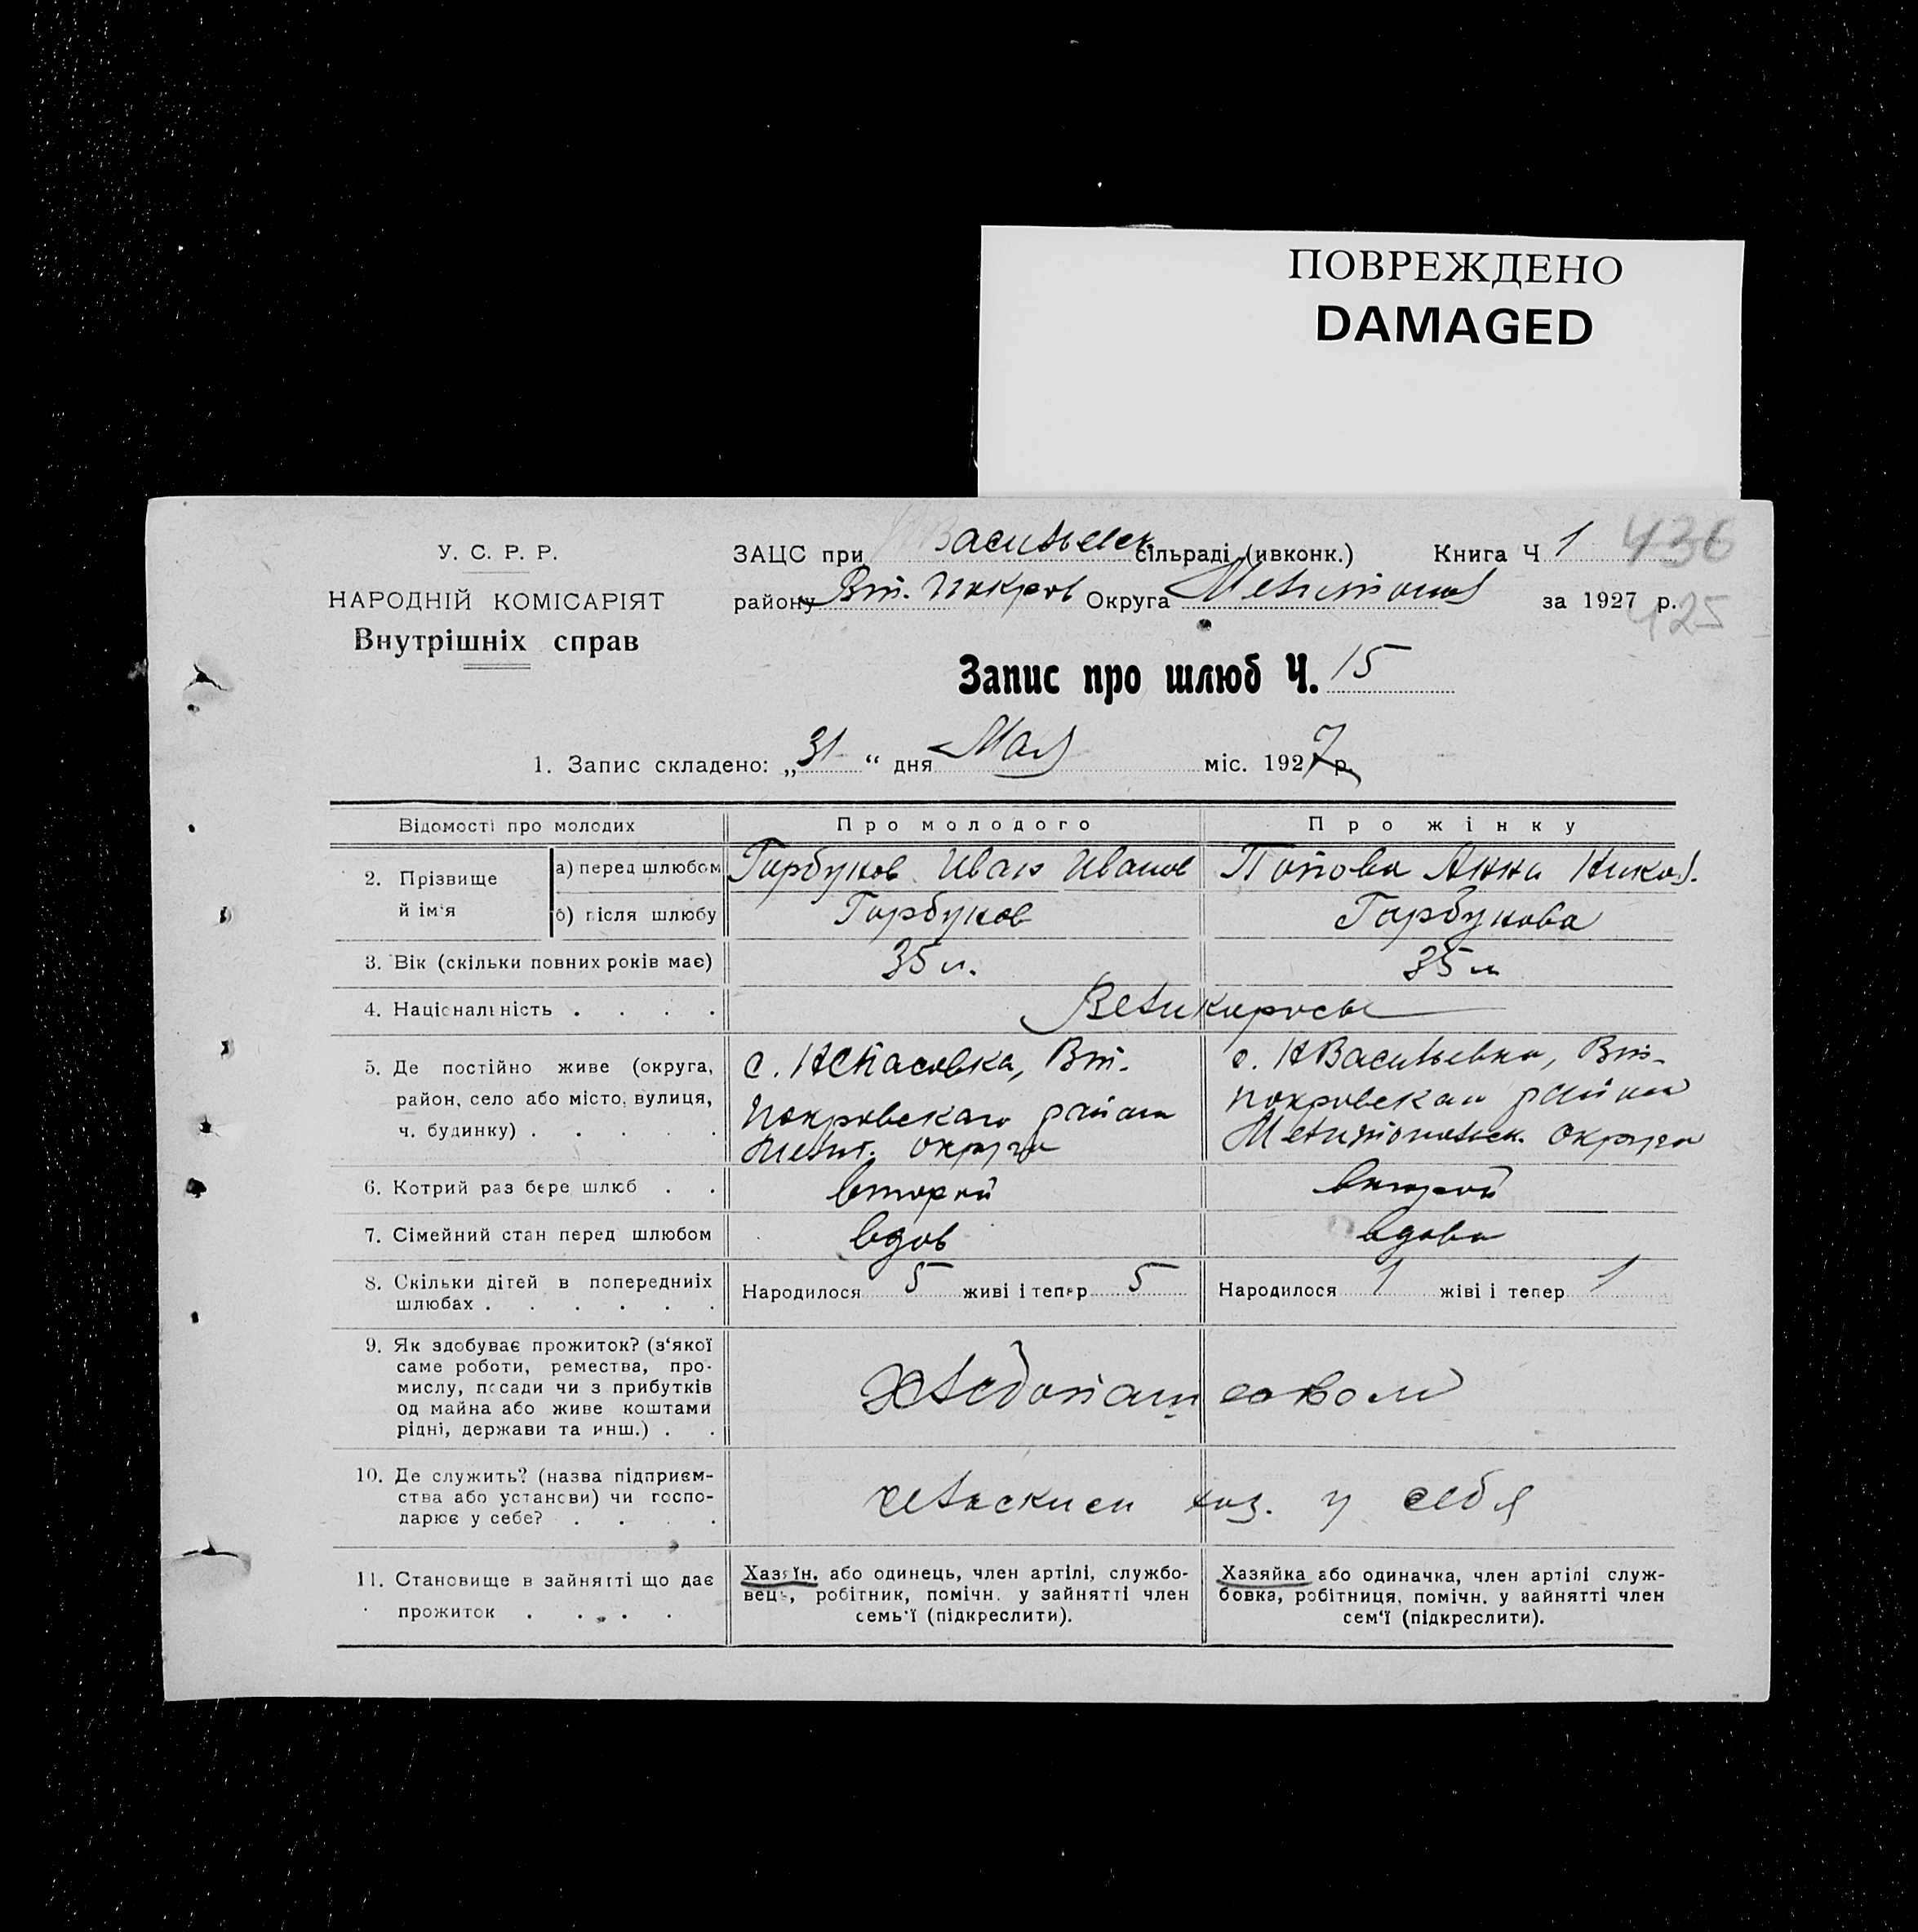 ПОВРЕЖДЕНО
DAMAGED
У. С. Р. Р.
НАРОДНІЙ КОМІСАРІЯТ
Внутрішніх справ
ЗАЦС при НВасильевск. сільраді (ивконк.) Книга Ч 1 436
району Вт. Покров Округа за 1927 р. 425
Запис про шлюб Ч. 15
1. Запис складено: „31“ дня Мая міс. 1927 р.
Відомості про молодих Про молодого Про жінку
2. Прізвище й ім'я а) перед шлюбом Гарбузов Иван Иванов Попова Анна Никол.
б) після шлюбу Гарбузов Гарбузова
3. Вік (скільки повних років має) 35 л. 35 л
4. Національність . . . . Великоросы
5. Де постійно живе (округа, с. НСпасовка, Вт. с. НВасильевка, Вт-
район, село або місто, вулиця, Покровскаго района покровскаго района
ч. будинку) . . . . . Мелит. округа Мелитопольск. округа
6. Котрий раз бере шлюб . . второй второй
7. Сімейний стан перед шлюбом вдов вдова
8. Скільки дітей в попередниіх
шлюбах . . . . . . Народилося 5 живі і тепер 5 Народилося 1 жіві і тепер 1
9. Як здобуває прожиток? (з‘якої
саме роботи, ремества, про-
мислу, посади чи з прибутків
од майна або живе коштами
рідні, держави та инш.) . . Хлебопашеством
10. Де служить? (назва підприєм-
ства або установи) чи госпо-
дарює у себе? . . . . сельском хоз. у себя
11. Становище в зайнятті що дає
прожиток . . . . .
Хазяїн, або одинець, член артілі, службо-
вець, робітник, помічн. у зайнятті член
семь'ї (підкреслити).
Хазяйка або одиначка, член артілі служ-
бовка, робітниця, помічн. у зайнятті член
сем‘ї (підкреслити).